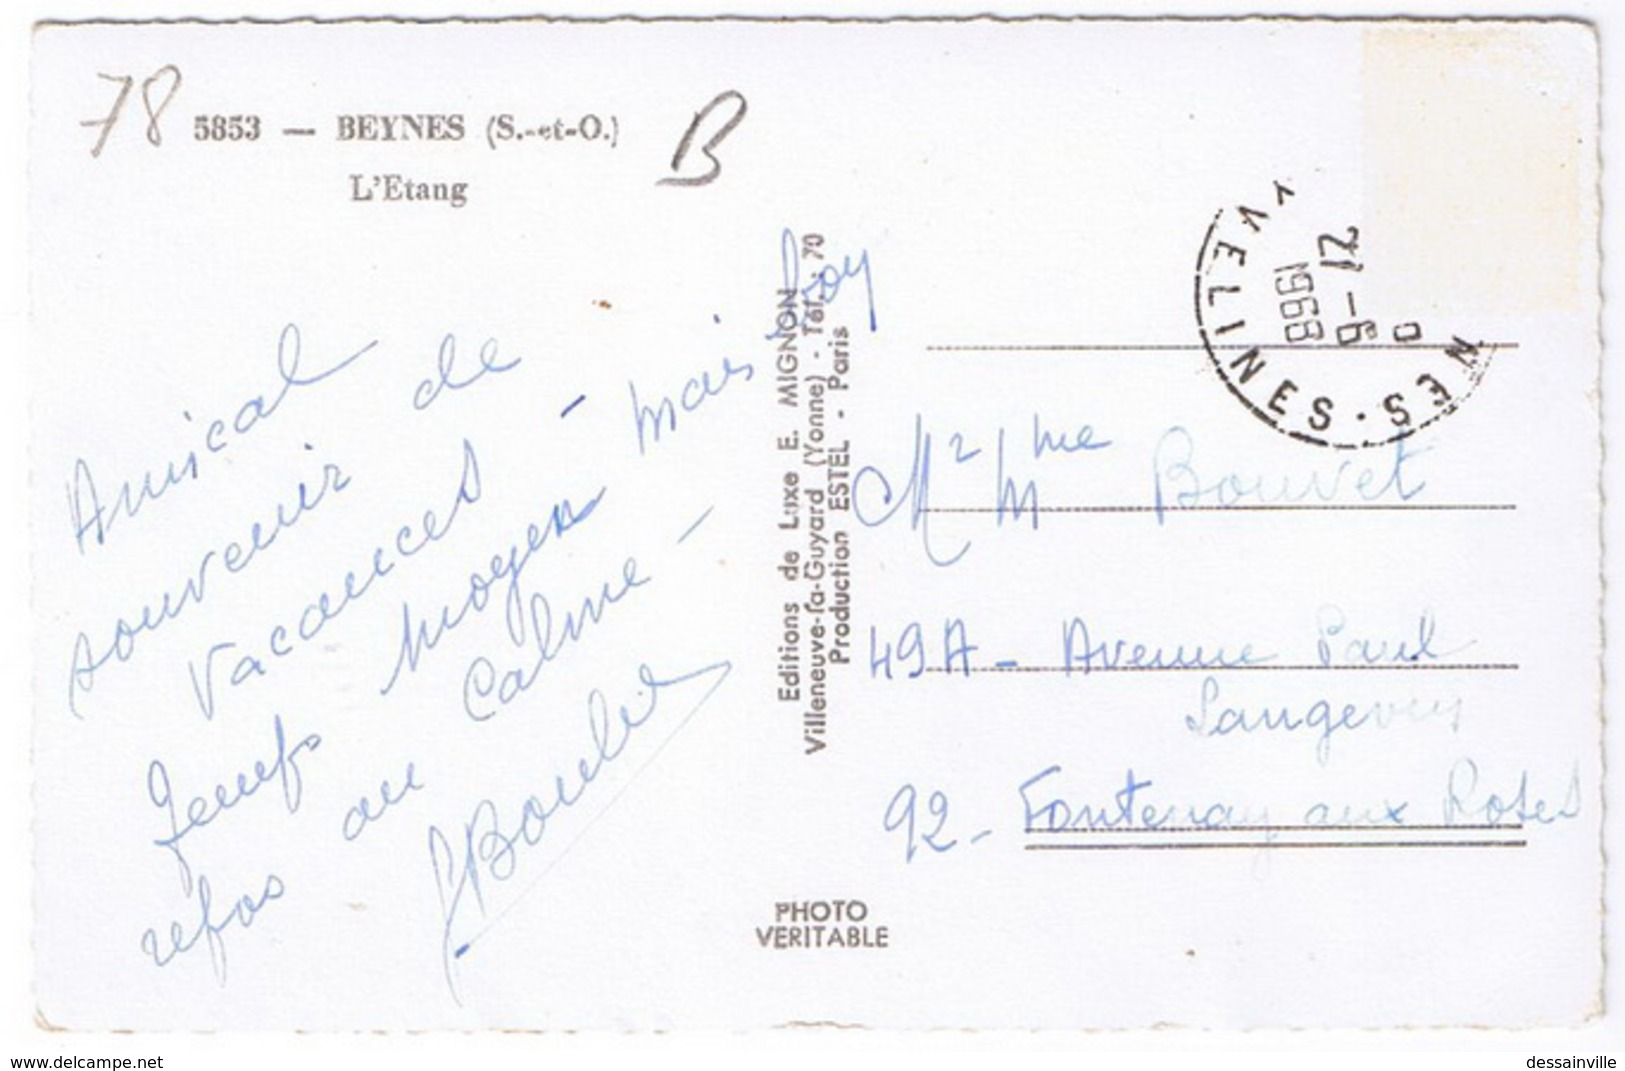 78
5853 — BEYNES (S.-et-O.)
B
L'Etang
Amical
souvenir de
vacances -
Temps moyen mais bon
repos au calme -
Boulie
Editions de Luxe E. MIGNON
Villeneuve-la-Guyard (Yonne) - Tél. : 70
Production ESTEL - Paris
PHOTO
VERITABLE
YVELINES
21-6
1968
Mr Mme Bouvet
49A - Avenue Paul
Langevin
92 - Fontenay aux Roses
www.delcampe.net
dessainville